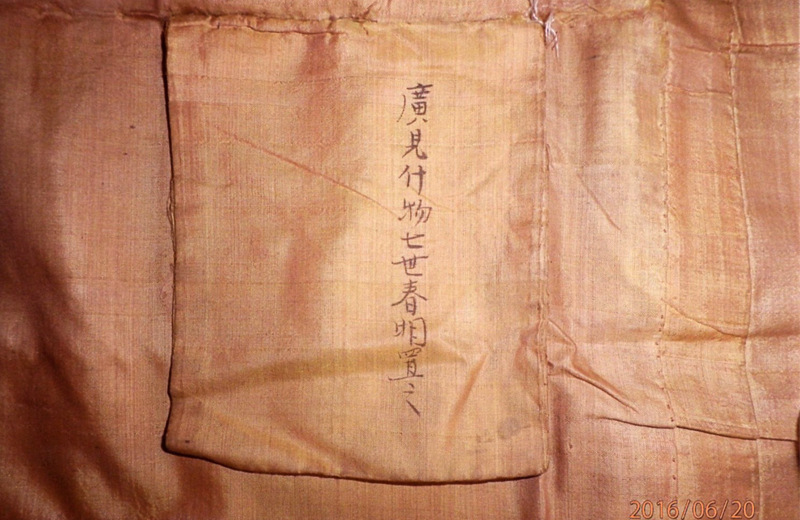 廣見什物七世春明置之
2016/06/20